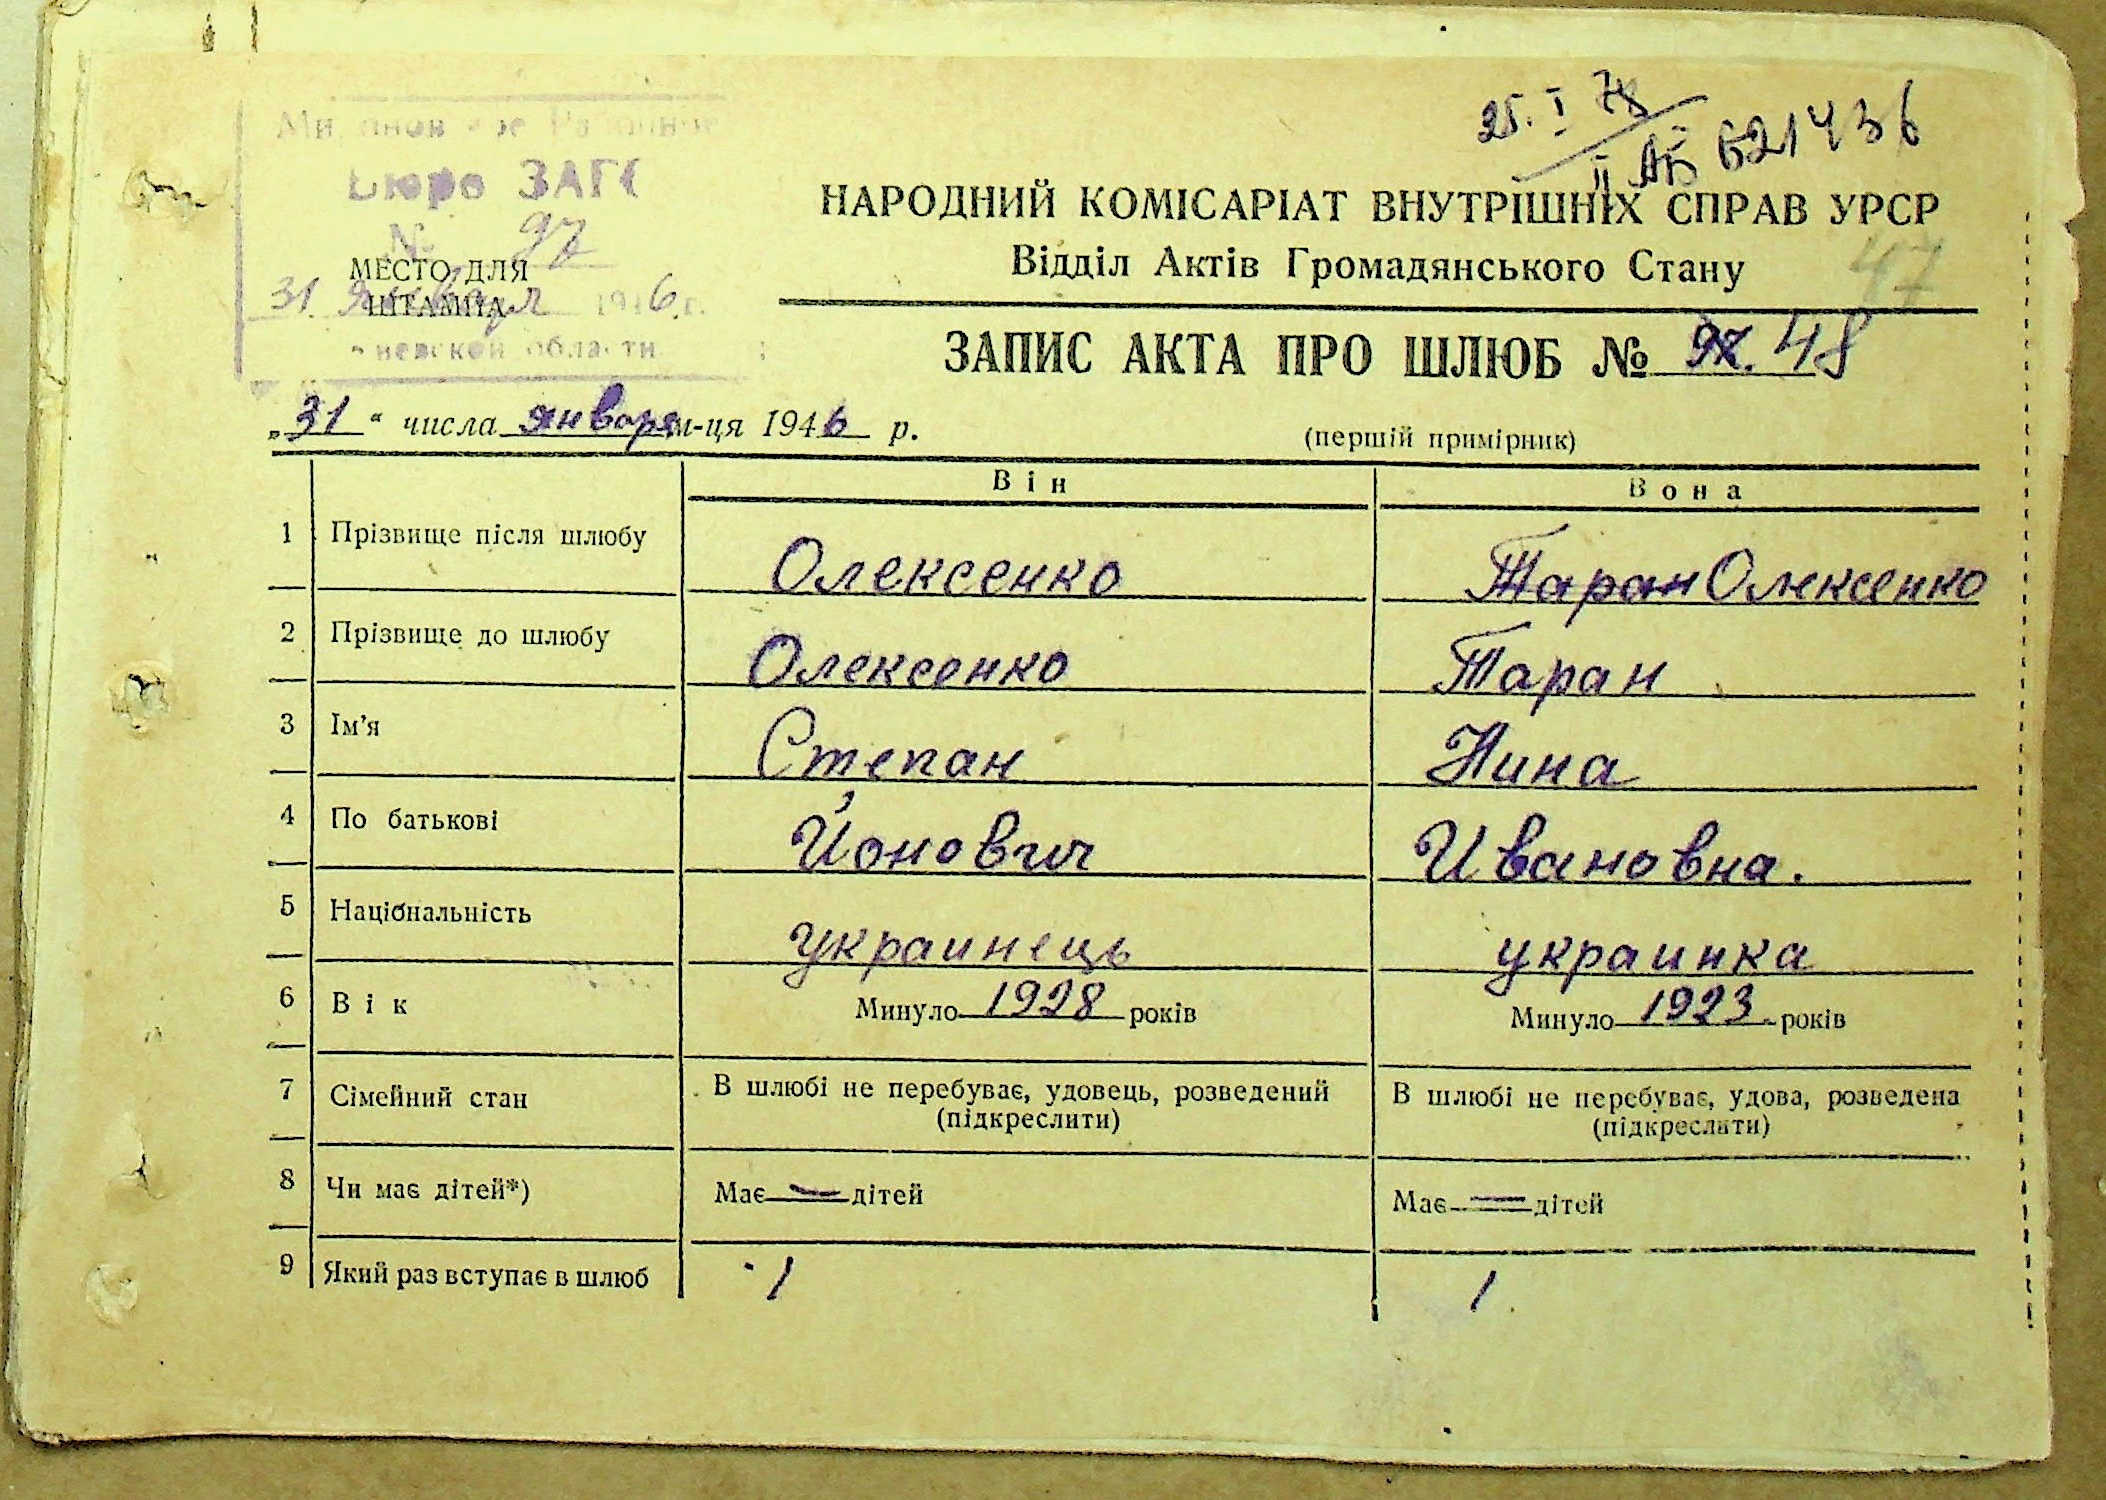 25. I 78
II АБ 621436
Бюро ЗАГС
№ 97
МЕСТО ДЛЯ
ШТАМПА
31 января 1946 г.
области
НАРОДНИЙ КОМІСАРІАТ ВНУТРІШНІХ СПРАВ УРСР
Відділ Актів Громадянського Стану
47
ЗАПИС АКТА ПРО ШЛЮБ № 97. 48
„31“ числа января м-ця 1946 р.
(першій примірник)
Він
Вона
1 Прізвище після шлюбу Олексенко Таран Олексенко
2 Прізвище до шлюбу Олексенко Таран
3 Ім’я Степан Нина
4 По батькові Йонович Ивановна.
5 Національність украинець украинка
6 Вік Минуло 1928 років Минуло 1923 років
7 Сімейний стан В шлюбі не перебуває, удовець, розведений (підкреслити) В шлюбі не перебуває, удова, розведена (підкреслити)
8 Чи має дітей*) Має — дітей Має — дітей
9 Який раз вступає в шлюб 1 1